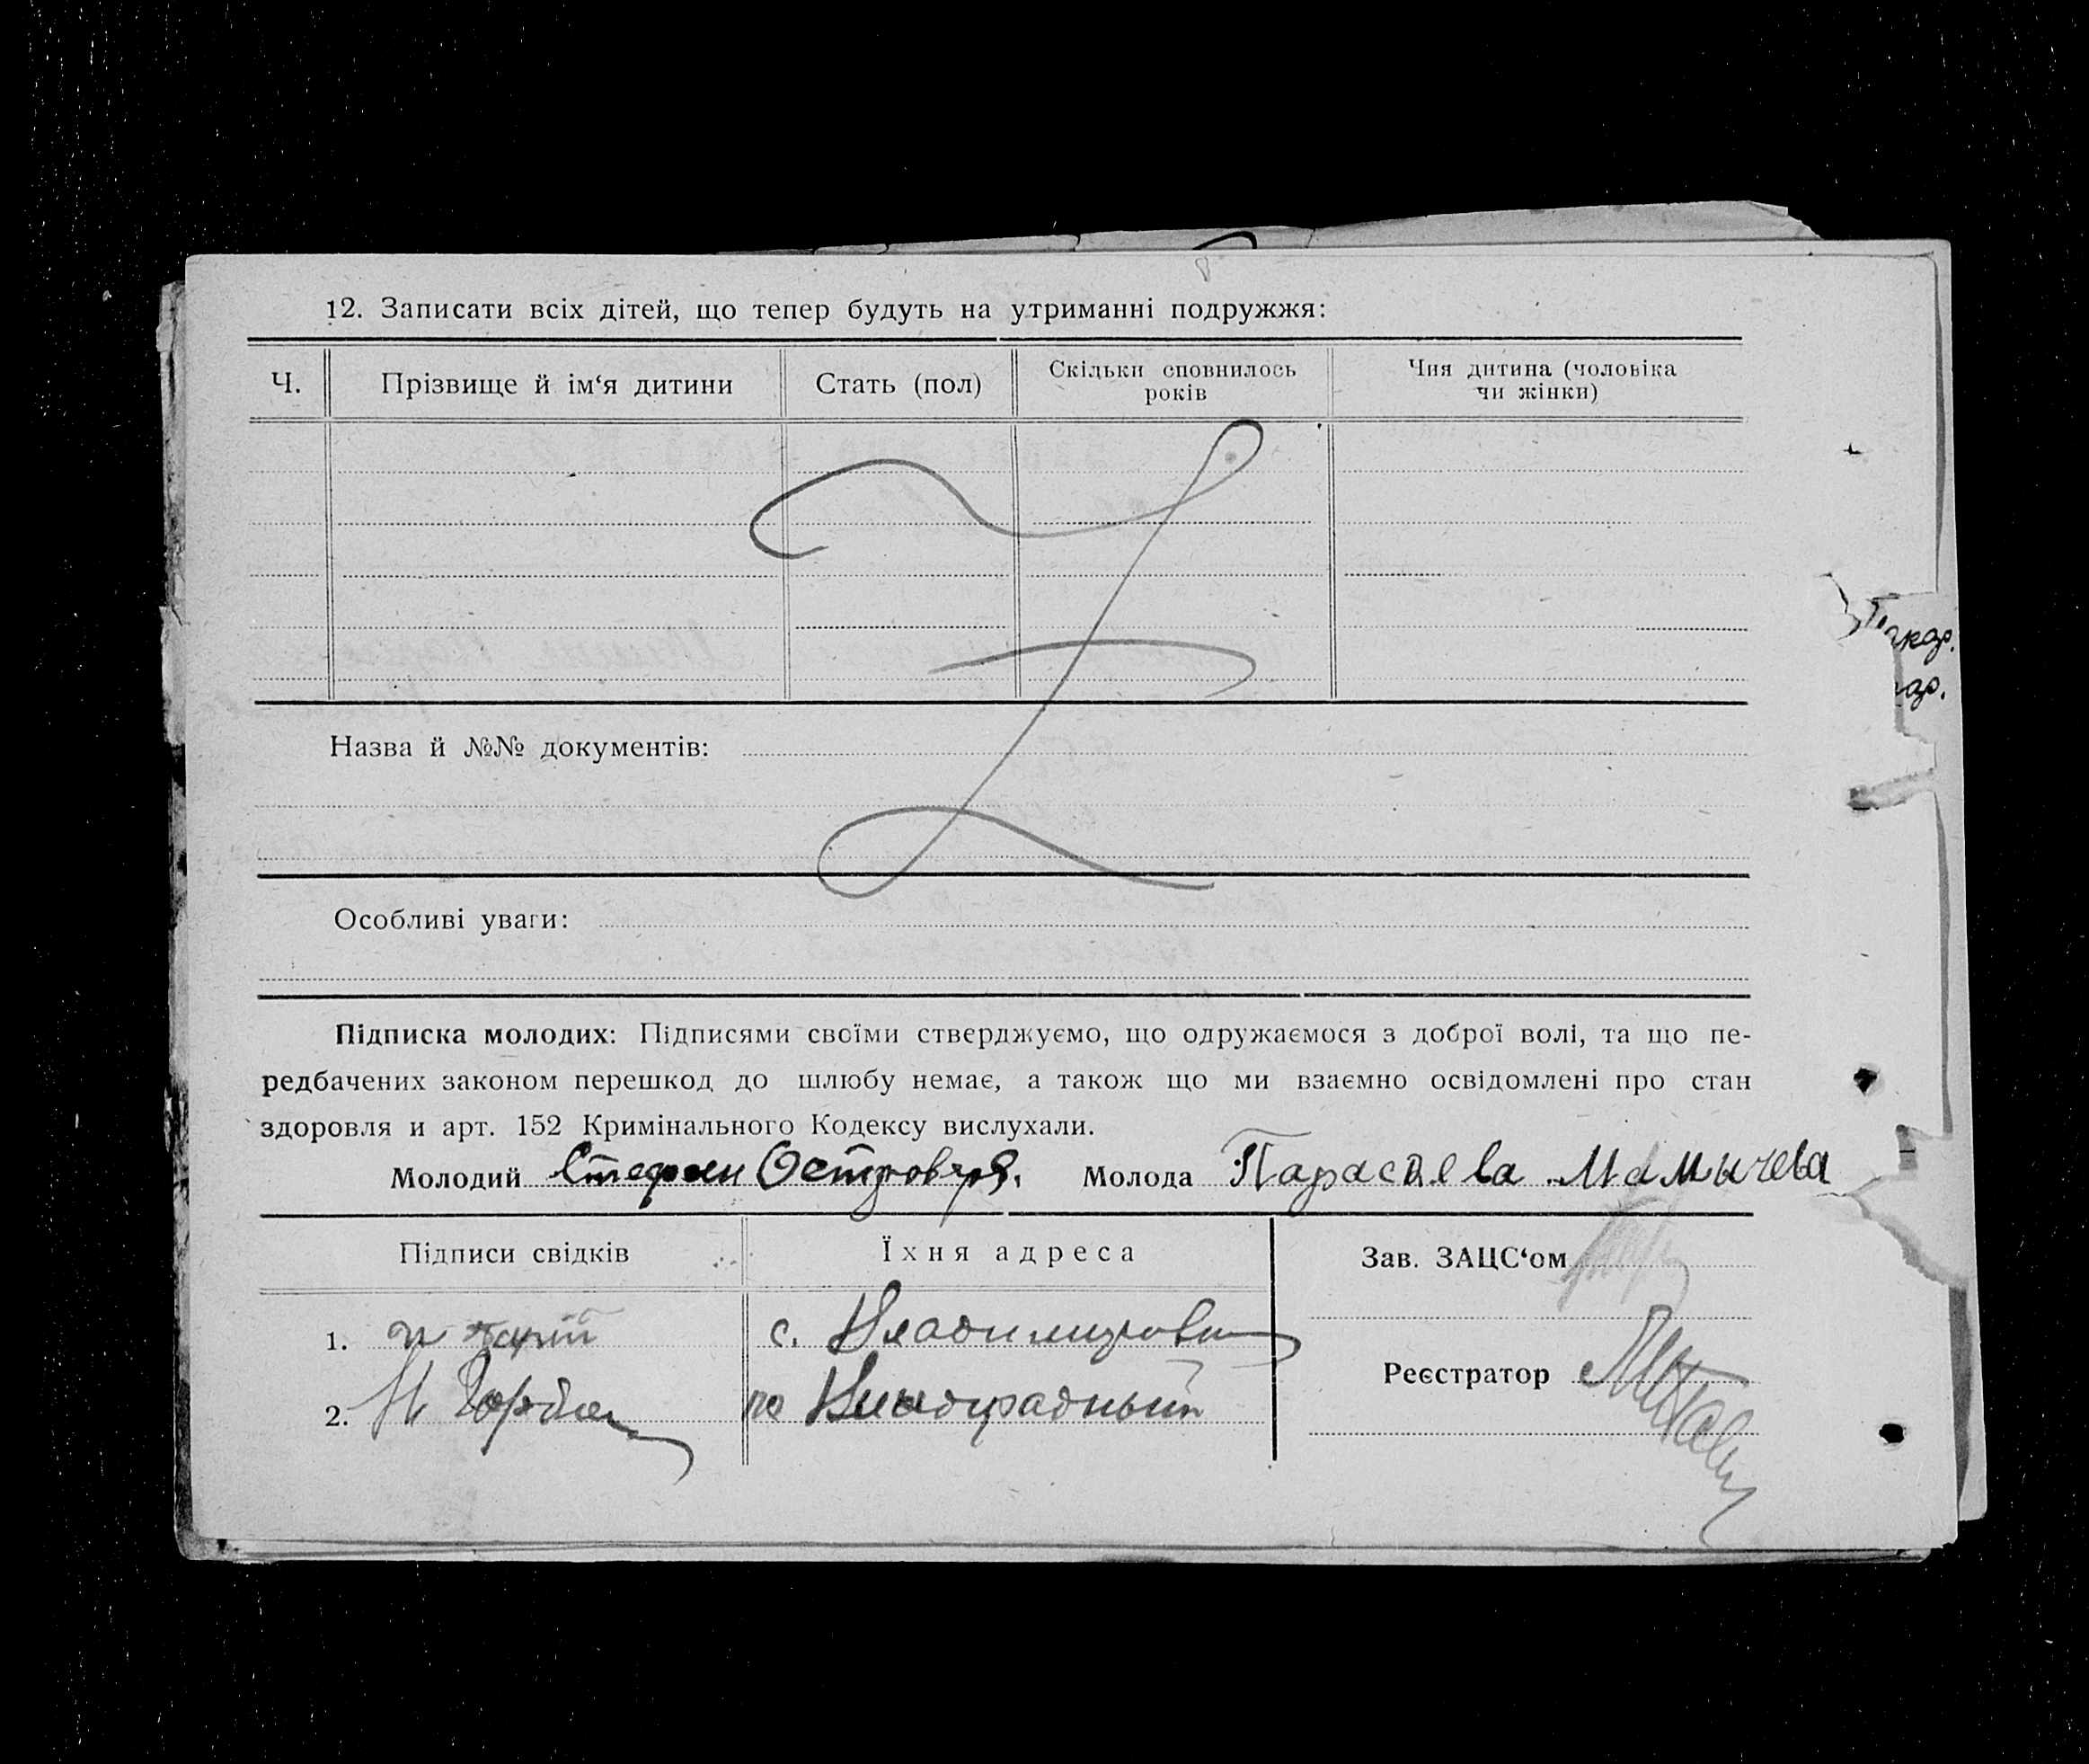 12. Записати всіх дітей, що тепер будуть на утриманні подружжя:
Ч.
Прізвище й ім‘я дитини
Стать (пол)
Скільки сповнилось
років
Чия дитина (чоловіка
чи жінки)
Назва й №№ документів:
Особливі уваги:
Підписка молодих: Підписями своїми стверджуємо, що одружаємося з доброї волі, та що пе-
редбачених законом перешкод до шлюбу немає, а також що ми взаємно освідомлені про стан
здоровля и арт. 152 Кримінального Кодексу вислухали.
Молодий Стефан Островерх. Молода Мамычева
Підписи свідків
Їхня адреса
Зав. ЗАЦС‘ом
1. с.
2. Н Горбан
Реєстратор